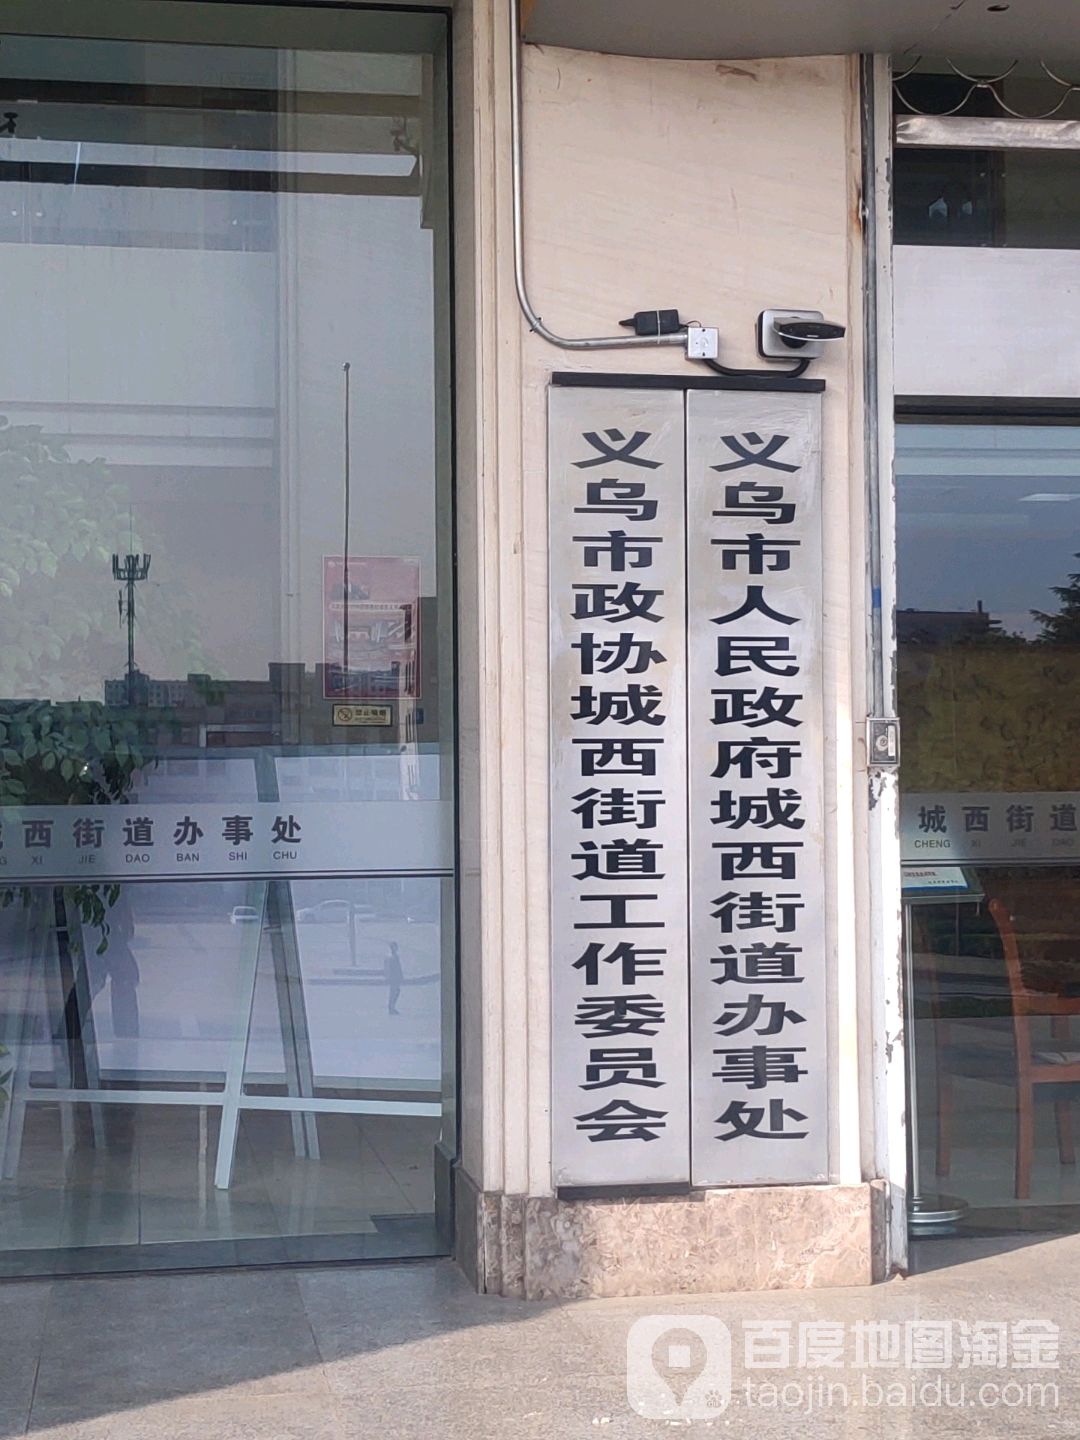 义乌市人民政府城西街道办事处
义乌市政协城西街道工作委员会
西街道办事处
XI JIE DAO BAN SHI CHU
禁止吸烟
城西街道
CHENG XI JIE DAO
百度地图淘金
taojin.baidu.com